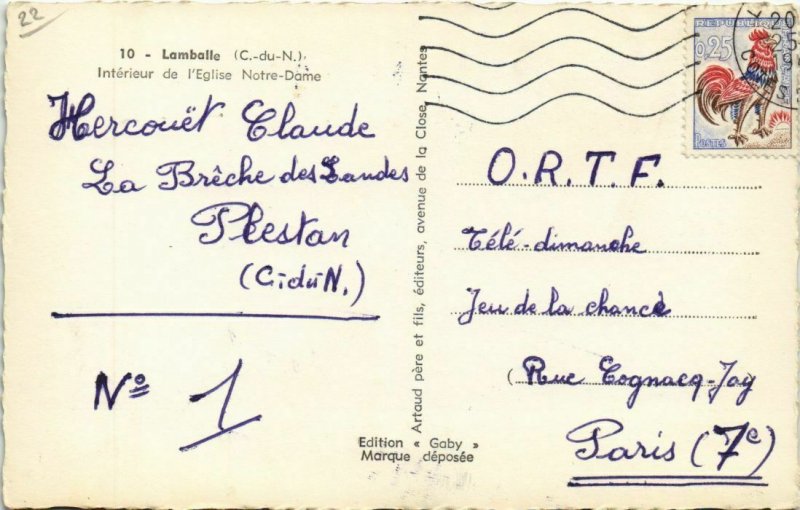 22
10 - Lamballe (C.-du-N.)
Intérieur de l'Eglise Notre-Dame
Hercouët Claude
La Brêche des Landes
Plestan
(C.duN.)
Nº 1
Artaud père et fils, éditeurs, avenue de la Close, Nantes
Edition « Gaby »
Marque déposée
REPUBLIQUE
0,25
POSTES
O.R.T.F.
Télé-dimanche
Jeu de la chance
(Rue Cognacq-Jay
Paris (7e)